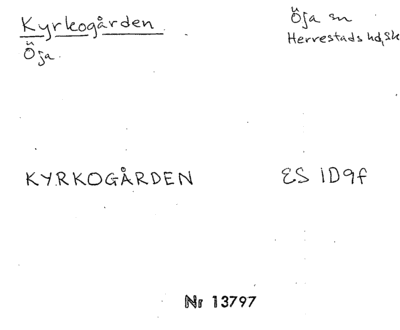 Kyrkogården
Öja.
Öja sn
Herrestads hd, Sk
KYRKOGÅRDEN
ES 1D9f
Nr 13797